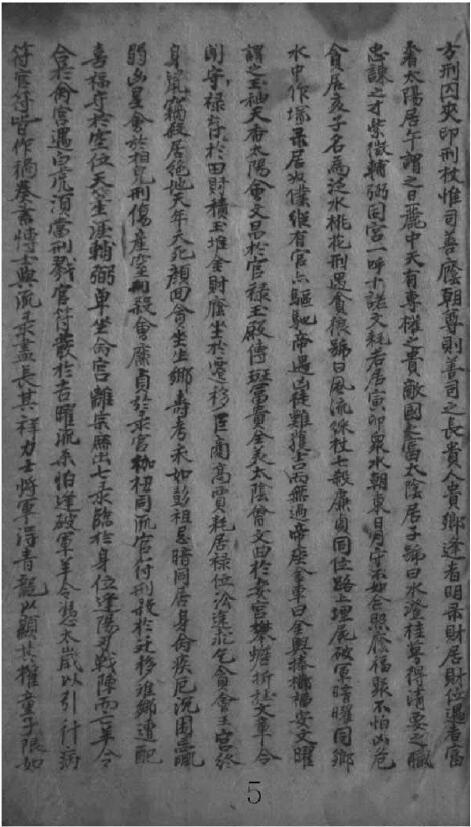 方刑囚夾印刑杖惟司善廕朝尊則善司之長貴人貴鄉逢者明录財居財位遇者富
奢太陽居午謂之日麗中天有專權之貴敵國之富太陰居子號曰水澄桂萼得清要之職
忠諫之才紫微輔弼同宮一呼十諾文耗若居寅卯眾水朝東日月守不如合照廕福聚不怕凶危
貪居亥子名為泛水桃花刑遇貪狼號曰風流綵杖七殺廉貞同位路上埋屍破軍暗曜同鄉
水中作塚录居奴僕縱有官亦驅馳帝遇凶徒雖獲吉而無道帝座金車曰金輿捧櫛福安文曜
謂之玉袖天香太陽會文昌於官禄玉殿傳班富貴全美太陰會文曲於妻宮攀蟾折桂文章令
闻守禄存於田財積玉堆金財廕坐於遷移巨商高賈耗居禄位沿途乞食貪會王宮終
身鼠竊殺居絕地天年夭死顏回貪坐生鄉壽考永如彭祖忌暗同居身命疾厄沉困尪羸
弱凶星會於相皃刑傷產室刑殺會廉貞於录宮枷杻同流官付刑殺於迁移離鄉遭配
善福守於空位天竺生涯輔弼單坐命宮離宗庶出七杀臨於身位逢陽刃戰陣而亡羊令
合於命宮遇白虎須當刑戮官符發於吉曜流杀怕逢破軍羊令憑太歲以引行病
符官符皆作禍奏書博士與流录盡長其祥力士將軍得青龍以顯其權童子限如
5